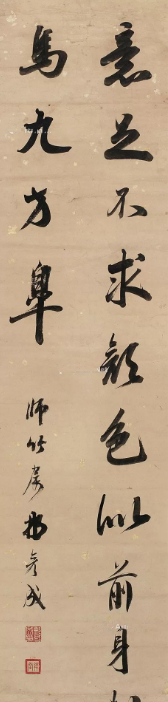 意足不求顏色似前身相
馬九方皋
師竹齋楊彥成